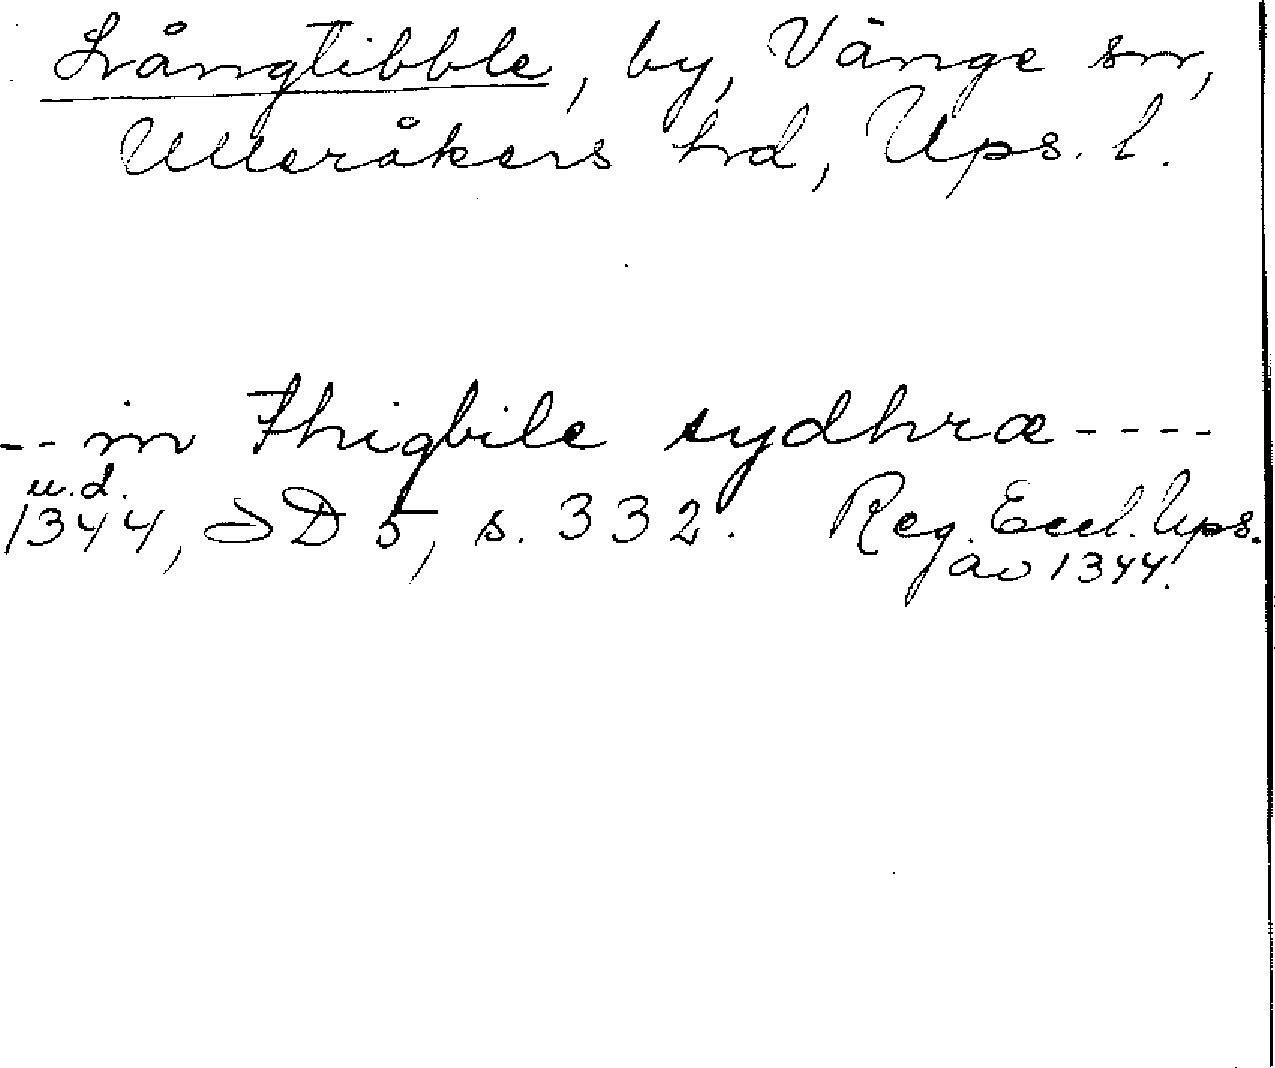 Långtibble, by, Vänge sn,
Ulleråkers hd, Ups. l.
-- in Thigbile sydhræ ----
u.d.
1344, SD 5, s. 332. Reg. Eccl. Ups.
av 1344.